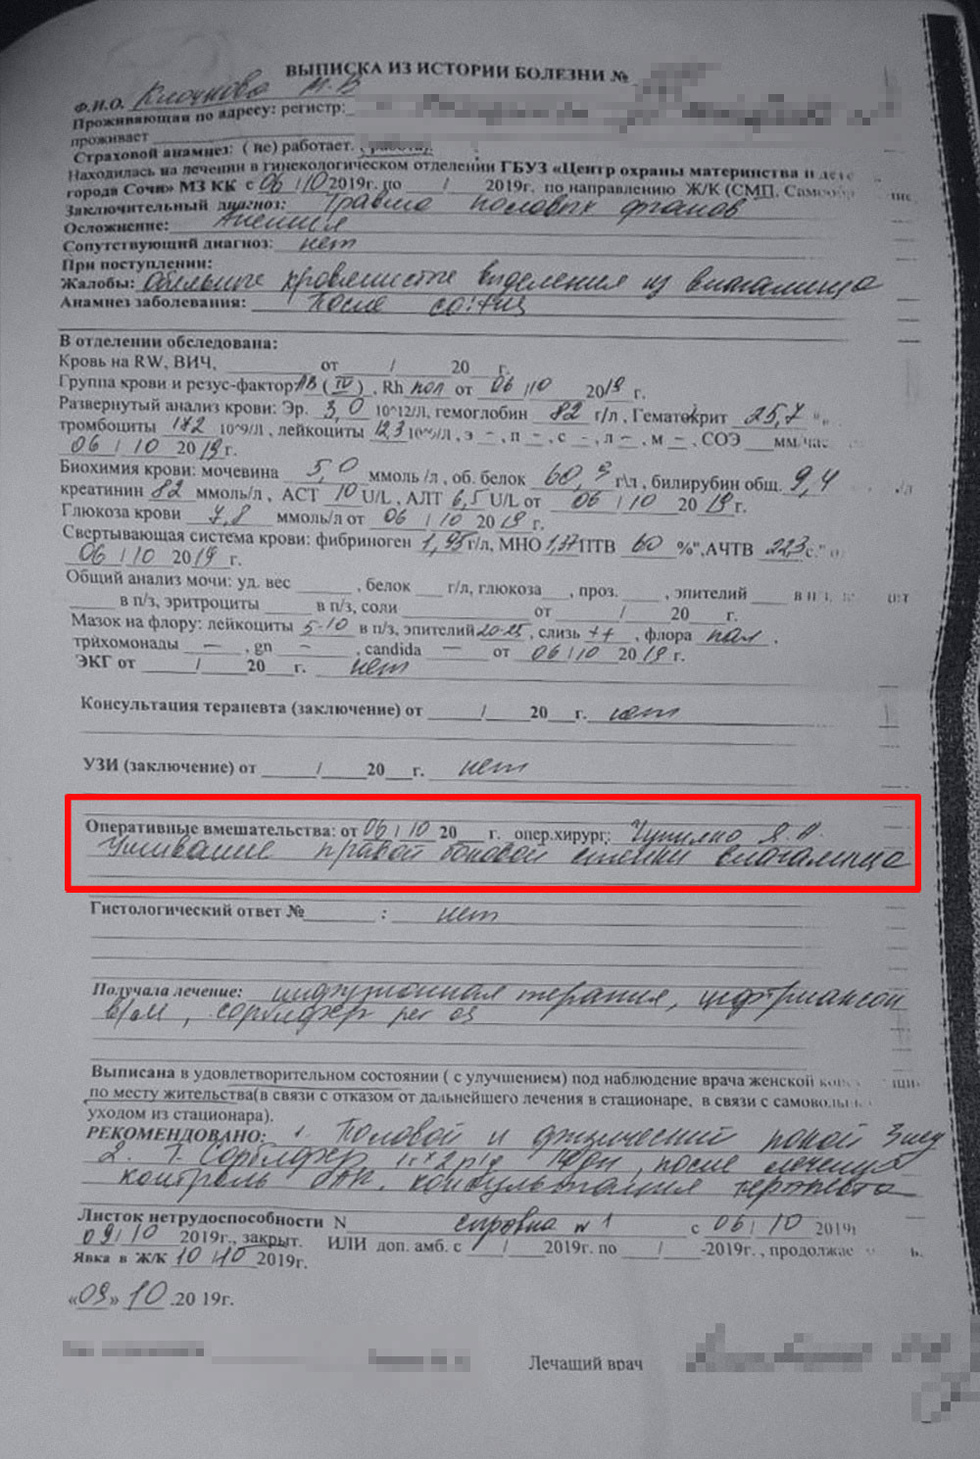 ВЫПИСКА ИЗ ИСТОРИИ БОЛЕЗНИ №
Ф.И.О. Клочкова М.В
Проживающая по адресу: регистр:
проживает
Страховой анамнез: ( не) работает. (работа).
Находилась на лечении в гинекологическом отделении ГБУЗ «Центр охраны материнства и дете
города Сочи» МЗ КК с 06 / 10 2019г. по ___/___ 2019г. по направлению Ж/К (СМП, Самообр
Заключительный диагноз: Травма половых органов
Осложнение: Анемия
Сопутствующий диагноз: нет
При поступлении:
Жалобы: Обильные кровянистые выделения из влагалища
Анамнез заболевания: После соития
В отделении обследована:
Кровь на RW, ВИЧ, ___ от ___/___ 20__ г.
Группа крови и резус-фактор АВ (IV) , Rh пол от 06 / 10 2019 г.
Развернутый анализ крови: Эр. 3,0 10^12/Л, гемоглобин 82 г/л , Гематокрит 25,7
тромбоциты 172 10^9/Л , лейкоциты 12,3 10^9/Л , э – , п – , с – , л – , м – , СОЭ ___мм/час
06 / 10 2019г.
Биохимия крови: мочевина 5,0 ммоль /л , об. белок 60,3 г\л , билирубин общ. 9,4
креатинин 82 ммоль/л , АСТ 10 U/L , АЛТ 6,5 U/L от 06 / 10 20 19 г.
Глюкоза крови 7,8 ммоль/л от 06 / 10 20 19 г.
Свертывающая система крови: фибриноген 1,95 г/л, МНО 1,37 ПТВ 60 %",АЧТВ 22,3 с."
06 / 10 2019 г.
Общий анализ мочи: уд. вес ___ , белок ___ г/л, глюкоза___, проз. ___ , эпителий ___ в п
___ в п/з, эритроциты ___ в п/з, соли ___ от ___/___ 20__г.
Мазок на флору: лейкоциты 5-10 в п/з, эпителий 20-25 , слизь ++ , флора пал .
трихомонады — , gn – , candida — от 06 / 10 20 19 г.
ЭКГ от ___/___20__г. нет
Консультация терапевта (заключение) от ___/___20__г. нет
УЗИ (заключение) от ___/___20__г. нет
Оперативные вмешательства: от 06 / 10 20__ г. опер.хирург:
Ушивание правой боковой стенки влагалища
Гистологический ответ №___ : нет
Получала лечение: инфузионная терапия, цефтриаксон
в/м , сорбифер per os
Выписана в удовлетворительном состоянии ( с улучшением) под наблюдение врача женской конс
по месту жительства(в связи с отказом от дальнейшего лечения в стационаре, в связи с самовольн
уходом из стационара).
РЕКОМЕНДОВАНО: 1. Половой и физический покой
2. Т. Сорбифер 1т х 2 р/д , после лечения
контроль ОАК, консультация терапевта
Листок нетрудоспособности N справка №1 с 06 / 10 2019г
09/ 10 2019г., закрыт. ИЛИ доп. амб. с ___/___ 2019г. по ___/___-2019г. , продолжае
Явка в Ж/К 10 /10 2019г.
«09» 10 .20 19г.
Лечащий врач